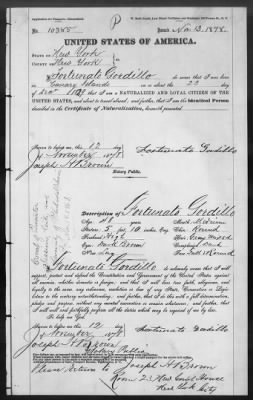 Application for Passport.
P
Issued Nov 13, 1878.
No. 10355
UNITED STATES OF AMERICA.
STATE OF New York
COUNTY OF New York
I, Fortunato Gordillo do swear that I was born
in Canary Islands on or about the 23 day
of that I am a NATURALIZED AND LOYAL CITIZEN OF THE
UNITED STATES, and about to travel abroad; and further, that I am the Identical Person
described in the Certificate of Naturalization, herewith presented.
Sworn to before me, this 12 day
of November 1878
Fortunato Gordillo
Joseph H Brown
Notary Public.
Description of Fortunato Gordillo
Age: 48 years. Mouth: Medium
Stature: 5 feet 10 inches, Eng. Chin: Round
Forehead: High Hair: Gray mixed
Eyes: Dark Brown Complexion: Dark
Nose: Long Face: Full & Round
I, Fortunato Gordillo do solemnly swear that I will support,
protect and defend the Constitution and Government of the United States against
all enemies, whether domestic or foreign; and that I will bear true faith, allegiance
and loyalty to the same, any ordinance, resolution or law of any State, Convention or Legis-
lature to the contrary notwithstanding; and further, that I do this with a full determina-
tion, pledge and purpose, without any mental reservation or evasion whatsoever; and
further, that I will well and faithfully perform all the duties which may be required of me by law.
So help me God.
Sworn to before me, this 12
of November 1878
Fortunato Gordillo
Joseph H Brown
Notary Public
Please return to Joseph H Brown
Room 23 New Court House
New York City